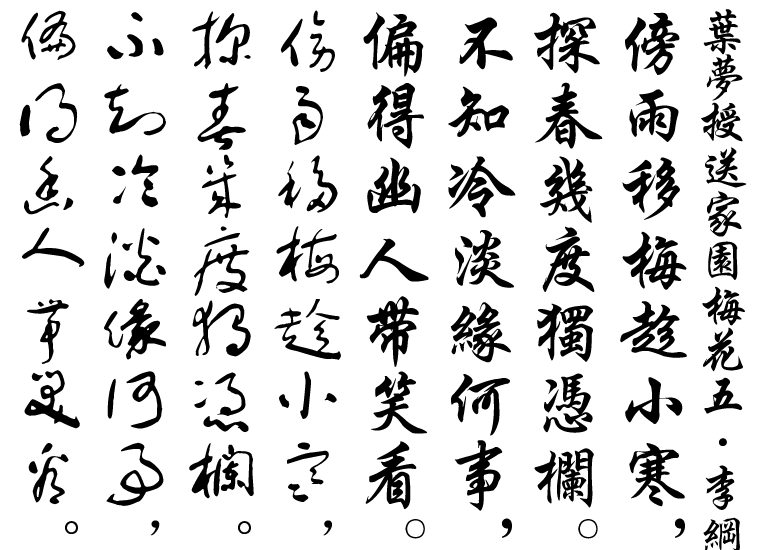 葉夢授送家園梅花五·李綱
傍雨移梅趁小寒，
探春幾度獨憑欄。
不知冷淡緣何事，
偏得幽人带笑看。
傍雨移梅趁小寒，
探春幾度獨憑欄。
不知冷淡緣何事，
偏得幽人带笑看。